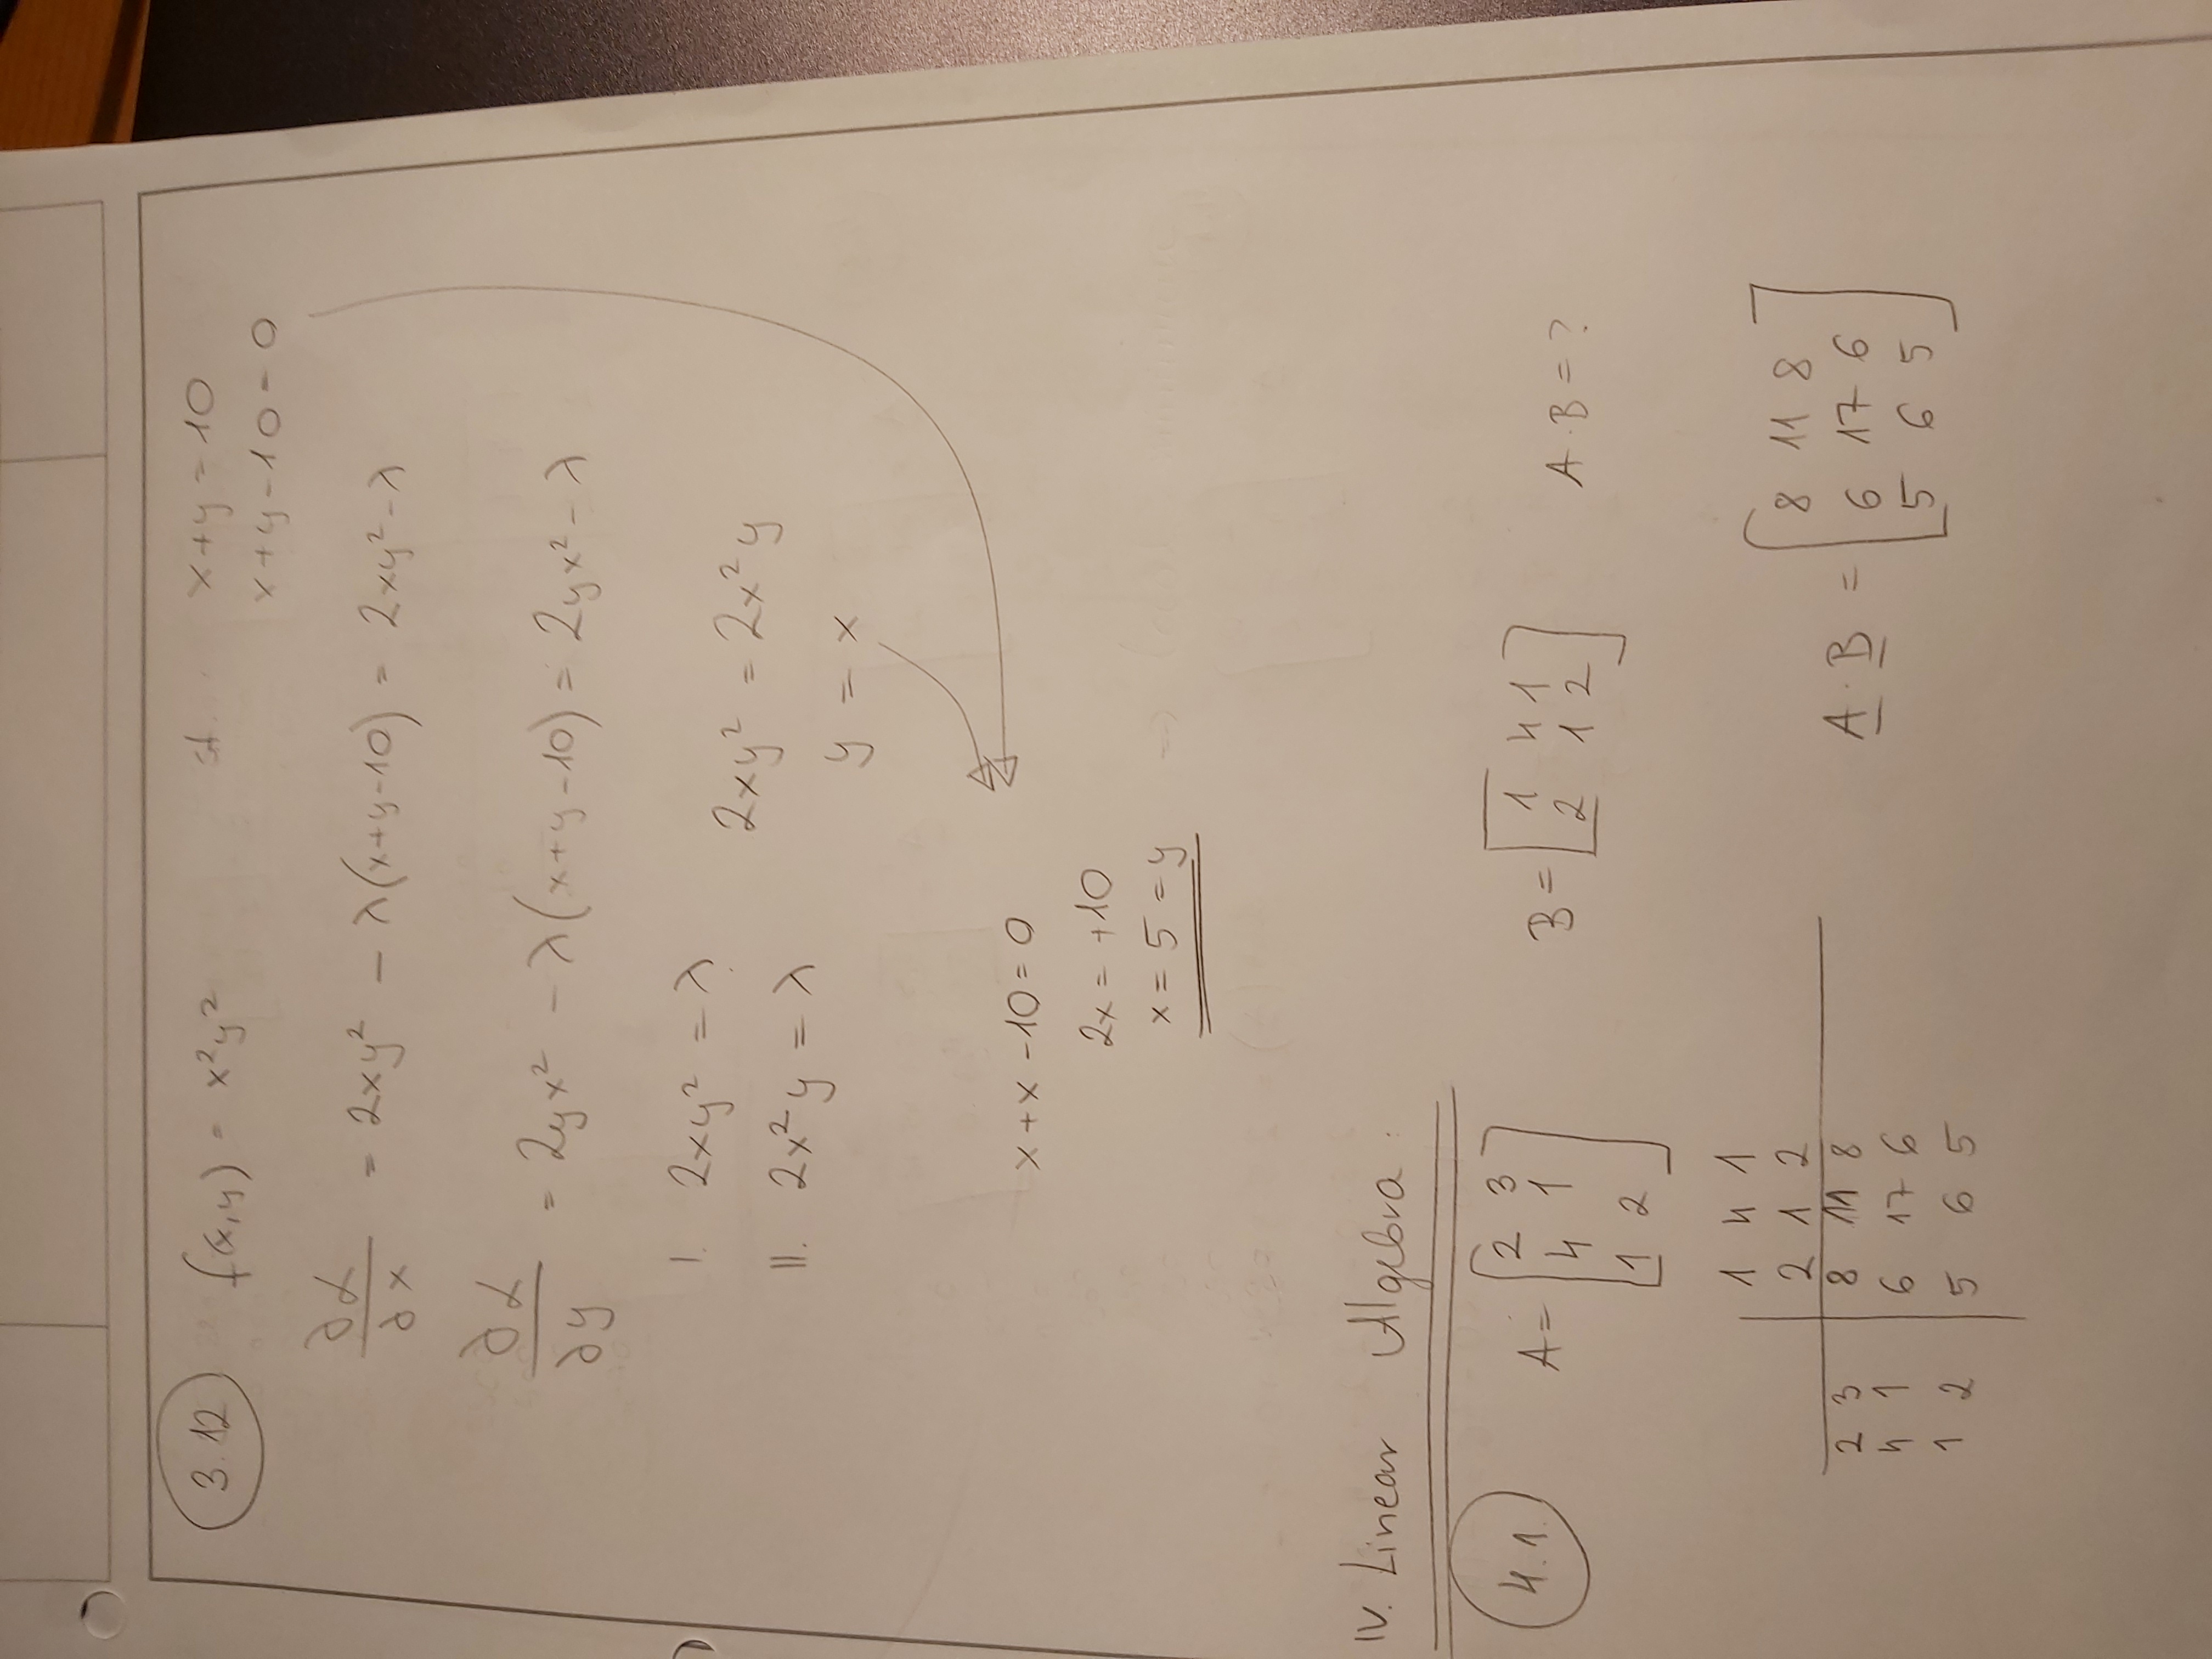 3.12 f(x,y) = x²y² st. x+y=10
x+y-10=0
∂L/∂x = 2xy² - λ(x+y-10) = 2xy²-λ
∂L/∂y = 2yx² - λ(x+y-10) = 2yx²-λ
I. 2xy² = λ
2xy² = 2x²y
II. 2x²y = λ
y = x
x+x-10=0
2x=+10
x=5=y
IV. Linear Algebra:
4.1. A= [2 3; 4 1; 1 2] B= [1 4 1; 2 1 2] A·B=?
1 4 1
2 1 2
2 3 8 11 8
4 1 6 17 6
1 2 5 6 5
A·B = [8 11 8; 6 17 6; 5 6 5]